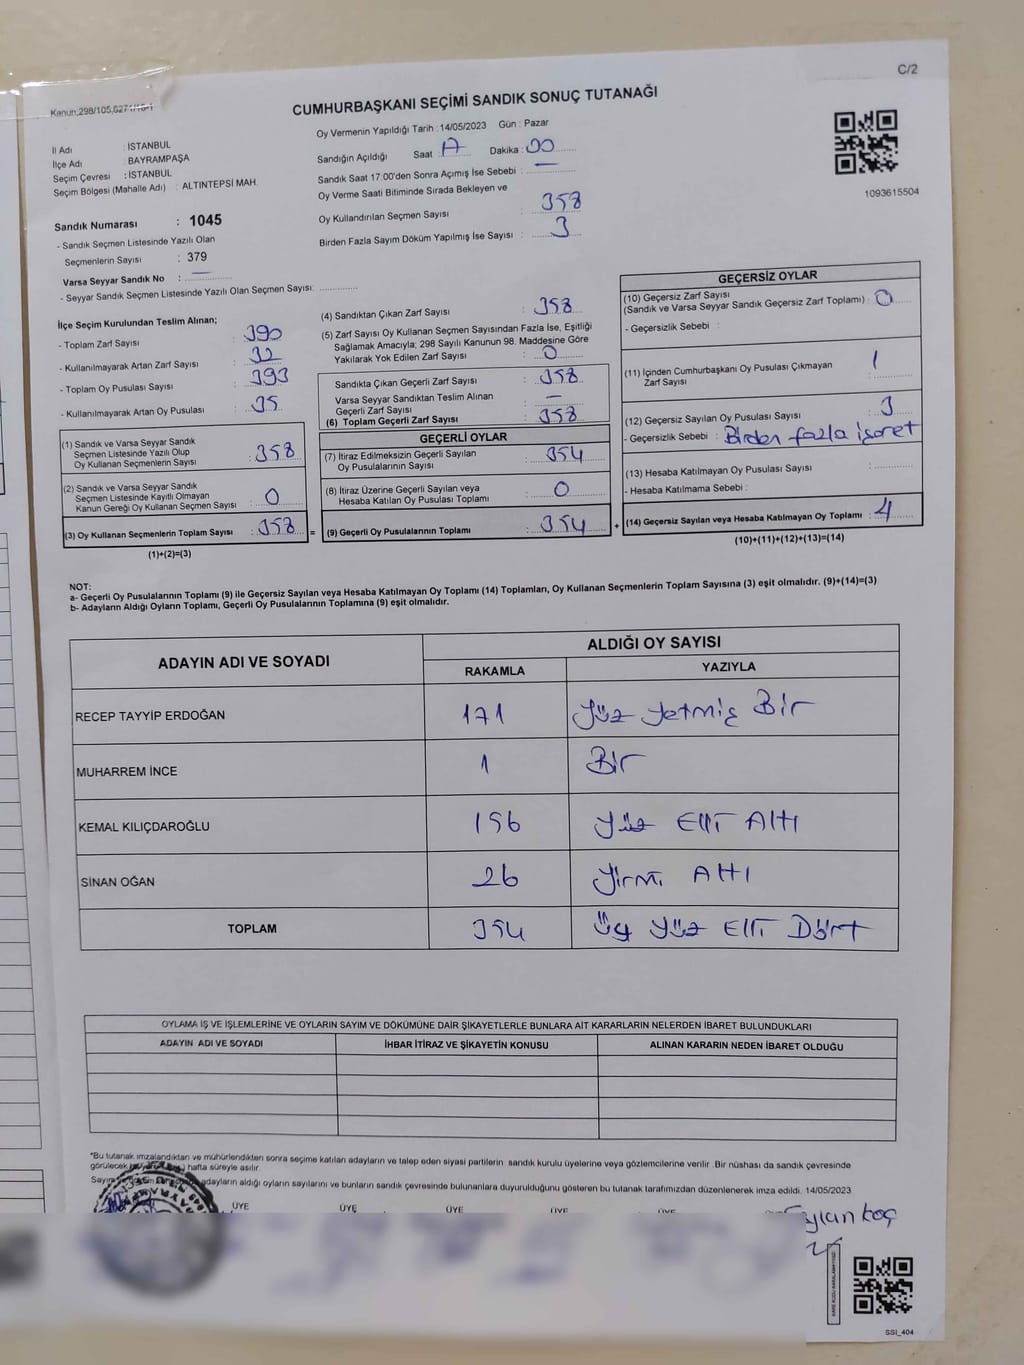 C/2
Kanun:298/105,6271/16-1
CUMHURBAŞKANI SEÇİMİ SANDIK SONUÇ TUTANAĞI
İl Adı : İSTANBUL
İlçe Adı : BAYRAMPAŞA
Seçim Çevresi : İSTANBUL
Seçim Bölgesi (Mahalle Adı) : ALTINTEPSİ MAH.
Sandık Numarası : 1045
- Sandık Seçmen Listesinde Yazılı Olan
Seçmenlerin Sayısı : 379
Varsa Seyyar Sandık No : —
- Seyyar Sandık Seçmen Listesinde Yazılı Olan Seçmen Sayısı:
Oy Vermenin Yapıldığı Tarih :14/05/2023 Gün : Pazar
Sandığın Açıldığı Saat : Dakika : 00
Sandık Saat 17.00'den Sonra Açımış İse Sebebi : —
Oy Verme Saati Bitiminde Sırada Bekleyen ve
Oy Kullandırılan Seçmen Sayısı : 358
Birden Fazla Sayım Döküm Yapılmış İse Sayısı : 3
1093615504
İlçe Seçim Kurulundan Teslim Alınan;
- Toplam Zarf Sayısı : 390
- Kullanılmayarak Artan Zarf Sayısı : 32
- Toplam Oy Pusulası Sayısı : 393
- Kullanılmayarak Artan Oy Pusulası : 35
(1) Sandık ve Varsa Seyyar Sandık
Seçmen Listesinde Yazılı Olup
Oy Kullanan Seçmenlerin Sayısı : 358
(2) Sandık ve Varsa Seyyar Sandık
Seçmen Listesinde Kayıtlı Olmayan
Kanun Gereği Oy Kullanan Seçmen Sayısı : 0
(3) Oy Kullanan Seçmenlerin Toplam Sayısı : 358
(1)+(2)=(3)
(4) Sandıktan Çıkan Zarf Sayısı : 358
(5) Zarf Sayısı Oy Kullanan Seçmen Sayısından Fazla İse, Eşitliği
Sağlamak Amacıyla; 298 Sayılı Kanunun 98. Maddesine Göre
Yakılarak Yok Edilen Zarf Sayısı : 0
Sandıkta Çıkan Geçerli Zarf Sayısı : 358
Varsa Seyyar Sandıktan Teslim Alınan
Geçerli Zarf Sayısı : —
(6) Toplam Geçerli Zarf Sayısı : 358
GEÇERLİ OYLAR
(7) İtiraz Edilmeksizin Geçerli Sayılan
Oy Pusulalarının Sayısı : 354
(8) İtiraz Üzerine Geçerli Sayılan veya
Hesaba Katılan Oy Pusulası Toplamı : 0
= (9) Geçerli Oy Pusulalarının Toplamı : 354
GEÇERSİZ OYLAR
(10) Geçersiz Zarf Sayısı
(Sandık ve Varsa Seyyar Sandık Geçersiz Zarf Toplamı) : 0
- Geçersizlik Sebebi :
(11) İçinden Cumhurbaşkanı Oy Pusulası Çıkmayan
Zarf Sayısı : 1
(12) Geçersiz Sayılan Oy Pusulası Sayısı : 3
- Geçersizlik Sebebi : Birden fazla işaret
(13) Hesaba Katılmayan Oy Pusulası Sayısı :
- Hesaba Katılmama Sebebi :
+ (14) Geçersiz Sayılan veya Hesaba Katılmayan Oy Toplamı : 4
(10)+(11)+(12)+(13)=(14)
NOT:
a- Geçerli Oy Pusulalarının Toplamı (9) ile Geçersiz Sayılan veya Hesaba Katılmayan Oy Toplamı (14) Toplamları, Oy Kullanan Seçmenlerin Toplam Sayısına (3) eşit olmalıdır. (9)+(14)=(3)
b- Adayların Aldığı Oyların Toplamı, Geçerli Oy Pusulalarının Toplamına (9) eşit olmalıdır.
ADAYIN ADI VE SOYADI
ALDIĞI OY SAYISI
RAKAMLA YAZIYLA
RECEP TAYYİP ERDOĞAN 171 Yüz Yetmiş Bir
MUHARREM İNCE 1 Bir
KEMAL KILIÇDAROĞLU 156 Yüz Elli Altı
SİNAN OĞAN 26 Yirmi Altı
TOPLAM 354 Üç Yüz Elli Dört
OYLAMA İŞ VE İŞLEMLERİNE VE OYLARIN SAYIM VE DÖKÜMÜNE DAİR ŞİKAYETLERLE BUNLARA AİT KARARLARIN NELERDEN İBARET BULUNDUKLARI
ADAYIN ADI VE SOYADI İHBAR İTİRAZ VE ŞİKAYETİN KONUSU ALINAN KARARIN NEDEN İBARET OLDUĞU
*Bu tutanak imzalandıktan ve mühürlendikten sonra seçime katılan adayların ve talep eden siyasi partilerin sandık kurulu üyelerine veya gözlemcilerine verilir .Bir nüshası da sandık çevresinde
görülecek hafta süreyle asılır.
adayların aldığı oyların sayılarını ve bunların sandık çevresinde bulunanlara duyurulduğunu gösteren bu tutanak tarafımızdan düzenlenerek imza edildi. 14/05/2023
ÜYE ÜYE ÜYE ÜYE ÜYE
Koç
SSI_404